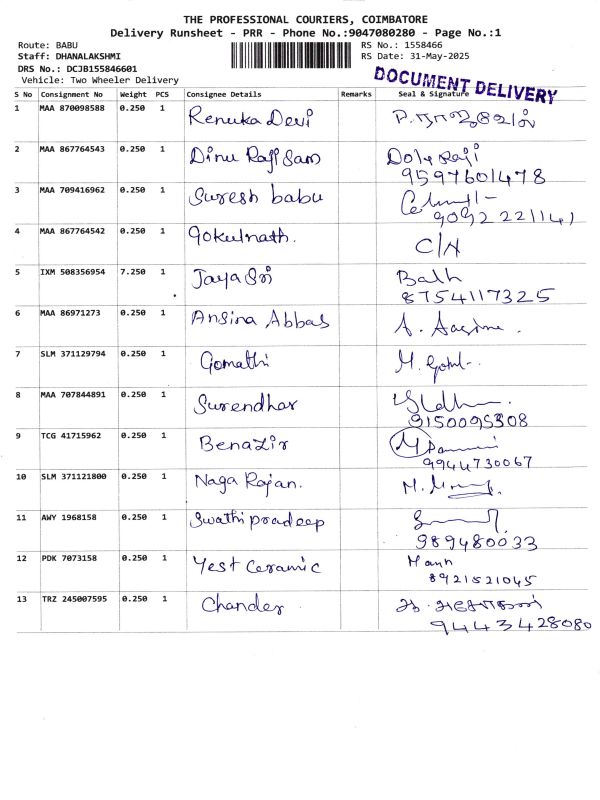 THE PROFESSIONAL COURIERS, COIMBATORE
Delivery Runsheet - PRR - Phone No.:9047080280 - Page No.:1
Route: BABU RS No.: 1558466
Staff: DHANALAKSHMI RS Date: 31-May-2025
DRS No.: DCJB155846601
Vehicle: Two Wheeler Delivery
DOCUMENT DELIVERY
S No Consignment No Weight PCS Consignee Details Remarks Seal & Signature
1 MAA 870098588 0.250 1 Renuka Devi
2 MAA 867764543 0.250 1 Dinu Raji Sam
9597601478
3 MAA 709416962 0.250 1 Suresh babu
9092221141
4 MAA 867764542 0.250 1 Gokulnath. C/H
5 IXM 508356954 7.250 1 Jaya Sri
8754117325
6 MAA 86971273 0.250 1 Ansina Abbas
7 SLM 371129794 0.250 1 Gomathi
8 MAA 707844891 0.250 1 Surendhar
9150095308
9 TCG 41715962 0.250 1 Benazir
9944730067
10 SLM 371121800 0.250 1 Naga Rajan.
11 AWY 1968158 0.250 1 Swathi pradeep
989480033
12 PDK 7073158 0.250 1 Yest Ceramic
8921521045
13 TRZ 245007595 0.250 1 Chander
9443428080